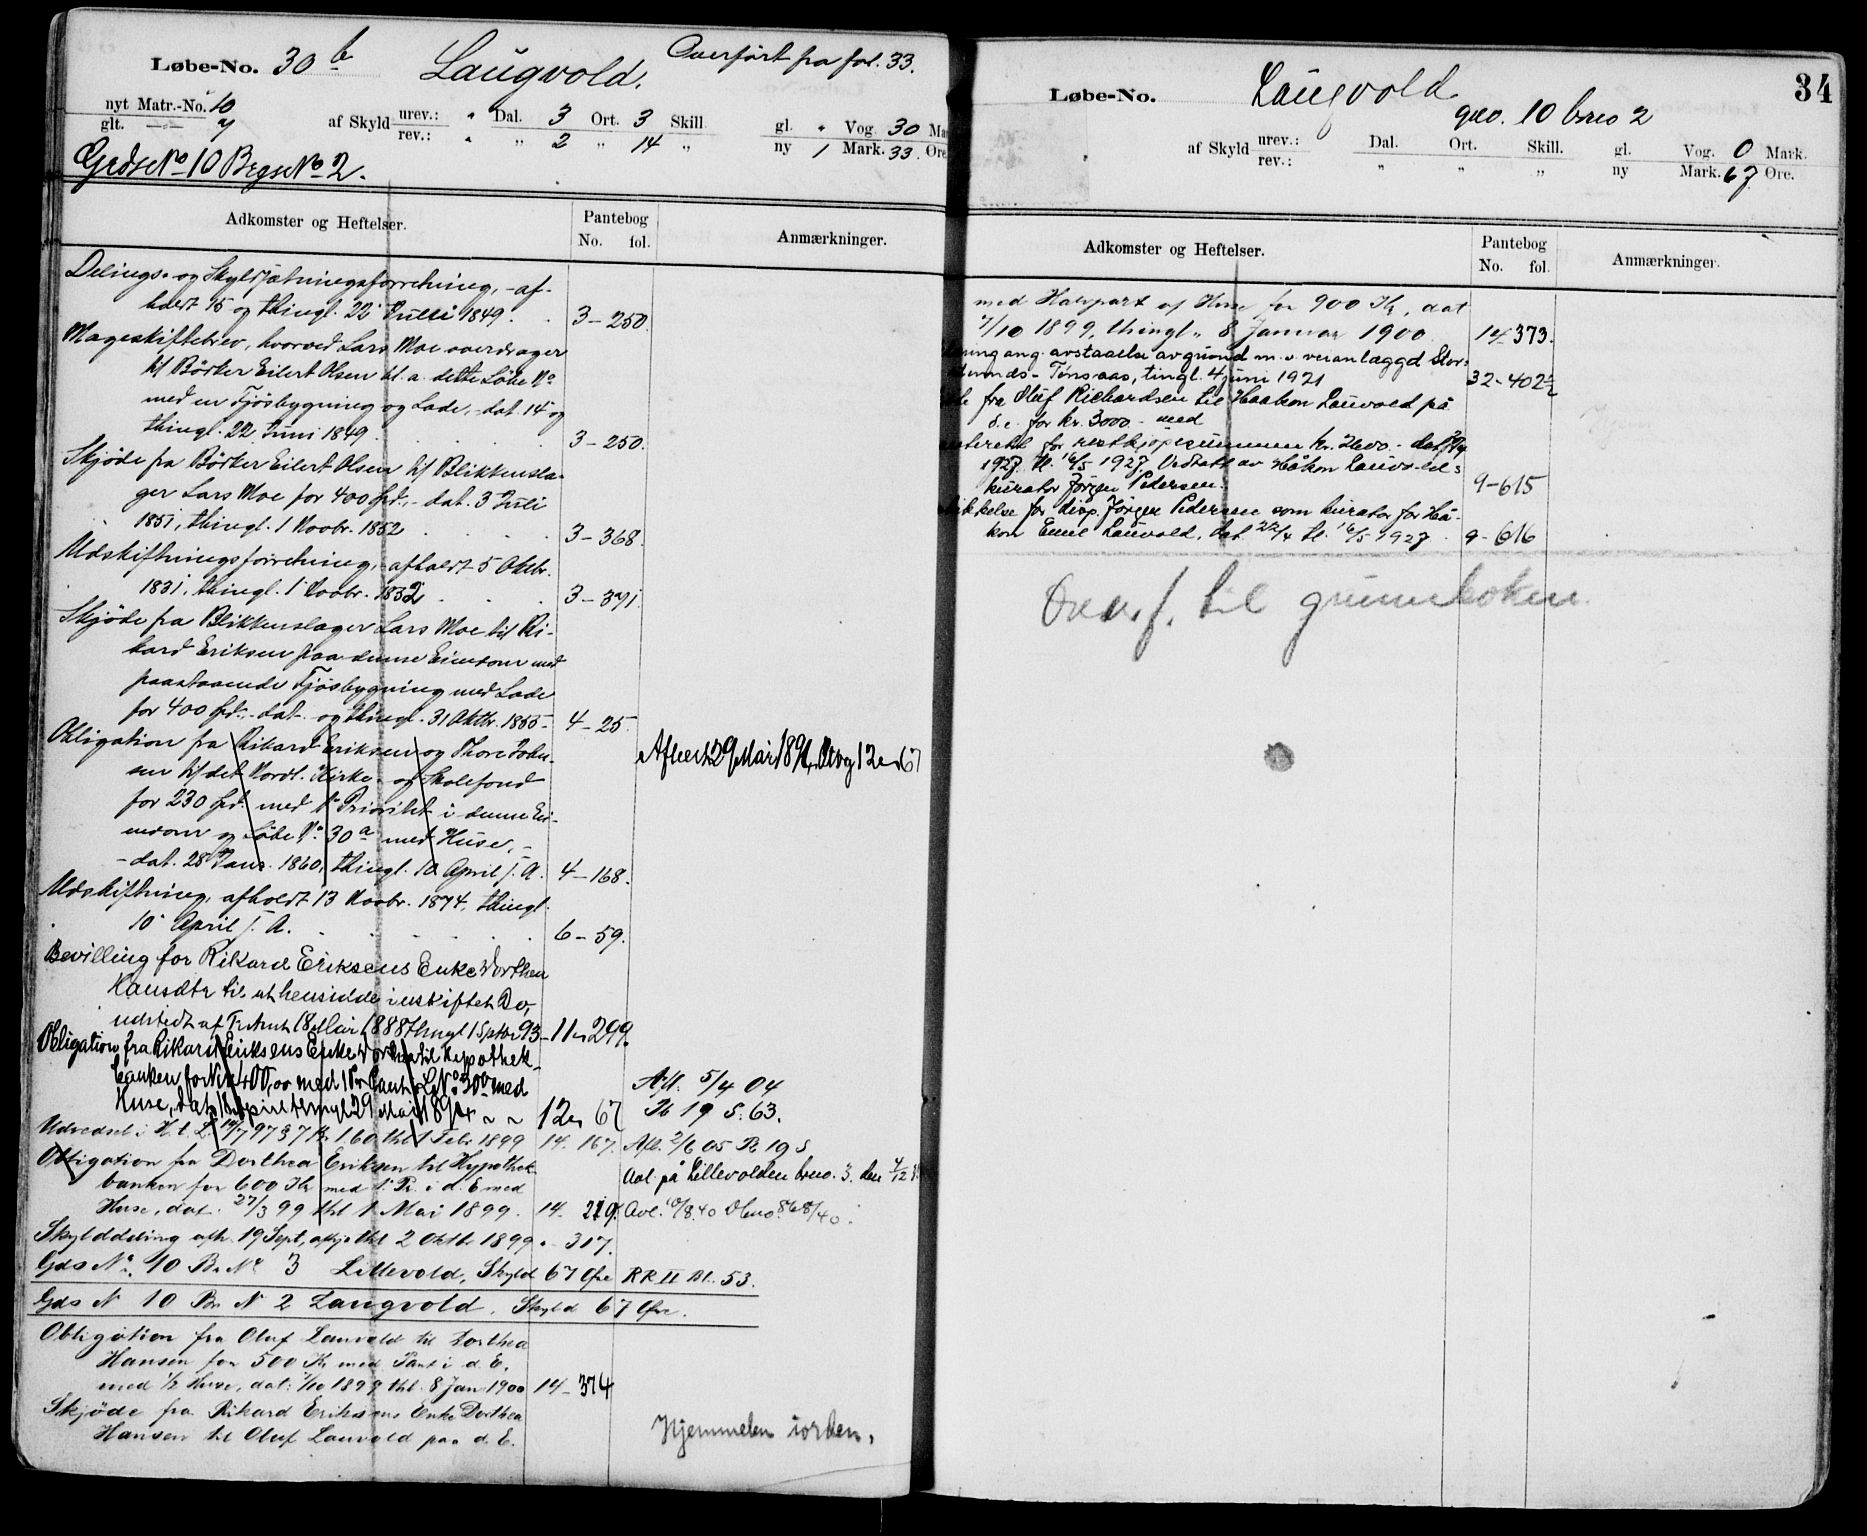 Løbe-No. 30 b Laugvold. Overført fra fol. 33.
nyt Matr.-No. 10
glt.
af Skyld urev.: " Dal. 3 Ort. 3 Skill. gl. " Vog 30 Ma
rev.: " " 2 " 14 " ny 1 Mark. 33. Øre
Grdse No 10 Brgse No 2.
Adkomster og Heftelser. Pantebog No. fol. Anmærkninger.
Delings- og Skyldsætningsforretning, - af-
holdt 15 og thingl. 22 Juni 1849. 3-250.
Mageskiftebrev, hvorved Lars Moe overdrager
til Bödker Eilert Olsen bl. a. dette Löbe No
med en Fjøsbygning og Lade, - dat. 14 og
thingl. 22 Juni 1849. 3-250.
Skjöde fra Bödker Eilert Olsen til Blikkensla-
ger Lars Moe for 400 Spd., - dat. 3 Juli
1851, thingl. 1 Novbr. 1852 3-368.
Udskiftningsforretning, - afholdt 5 Oktbr.
1851, thingl. 1 Novbr. 1852 3-371.
Skjöde fra Blikkenslager Lars Moe til Ri-
kard Eriksen paa denne Eiendom med
paastaaende Fjøsbygning med Lade
for 400 Spd., - dat. og thingl. 31 Oktbr. 1855 4-25.
Obligation fra Rikard Eriksen og Thore John-
sen til det Nordl. Kirke- og Skolefond Aflæst 29 Mai 1894, Obog 12 - 67
for 230 Spd. med 1ste Prioritet i denne Ei-
endom og Löbe No 30 a med Huse, -
- dat. 28 Janr. 1860, thingl. 10 April s. A. 4-168.
Udskiftning, afholdt 13 Novbr. 1874, thingl.
10 April s. A. 6-59.
Bevilling for Rikard Eriksens Enke Dorthea
Hansdtr til at hensidde i uskiftet Bo,
udstedt af Tr. Amt 18 Mai 1888 thingl 1 Septbr 93 - 11 - 299.
Obligation fra Rikard Eriksens Enke Dorthea til Hypothek-
banken for Kr 400,00 med 1 Pr Pant i LNo 30 b med Afl. 5/4 04
Huse, dat April thingl 29 Mai 1894 12 - 67 Pb 19 S. 63.
160 thl 1 Febr 1899 14. 167. Afl. 2/6 05 Pb 19 S
Obligation fra Dorthea Eriksen til Hypothek- Avl. på Lillevolden brno. 3. den
banken for 600 Kr med 1 Pr. i d. E med
Huse, dat. 27/3 99 thl 1 Mai 1899. 14. 219. Avl. 10/8.40 Dbno. 868/40.
Skylddeling afh. 19 Sept, thl 2 Oktbr 1899 " - 317.
Gds No 10 Br No 3 Lillevold, Skyld 67 Øre RR II Bl. 53.
Gds N 10 Br N 2 Laugvold, Skyld 67 Øre.
Obligation fra Oluf Lauvold til Dorthea
Hansen for 500 Kr med Pant i d. E.
med 1/2 Huse, dat: 7/10 1899 thl. 8 Jan 1900 14-374
Skjöde fra Rikard Eriksens Enke Dorthea
Hansen til Oluf Lauvold paa d. E. Hjemmelen iorden.
34
Løbe-No. Laugvold. gno. 10 brno 2
af Skyld urev.: Dal. Ort. Skill. gl. Vog. 0 Mark.
rev.: " " " ny Mark. 67 Øre.
Adkomster og Heftelser. Pantebog No. fol. Anmærkninger.
med Halvpart af Huse for 900 Kr, dat
7/10 1899, thingl. 8 Januar 1900 14 - 373.
ang. avstaaelse av grund m. v. veranlæggd Stor-
- Tönsaas, tingl. 4 juni 1921 32-402
fra Oluf Richardsen til Haakon Lauvold på
d. e. for kr. 3000.- med
for restkjöpesummen kr.
1927, tl. 16/5 1927. Vedtatt av Håkon Lauvolds
kurator Jörgen Pedersen. 9-615
for disp. Jörgen Pedersen som kurator for Hå-
kon Emil Lauvold, dat. 22/4 tl. 16/5 1927. 9-616
Overf. til grunnboken.